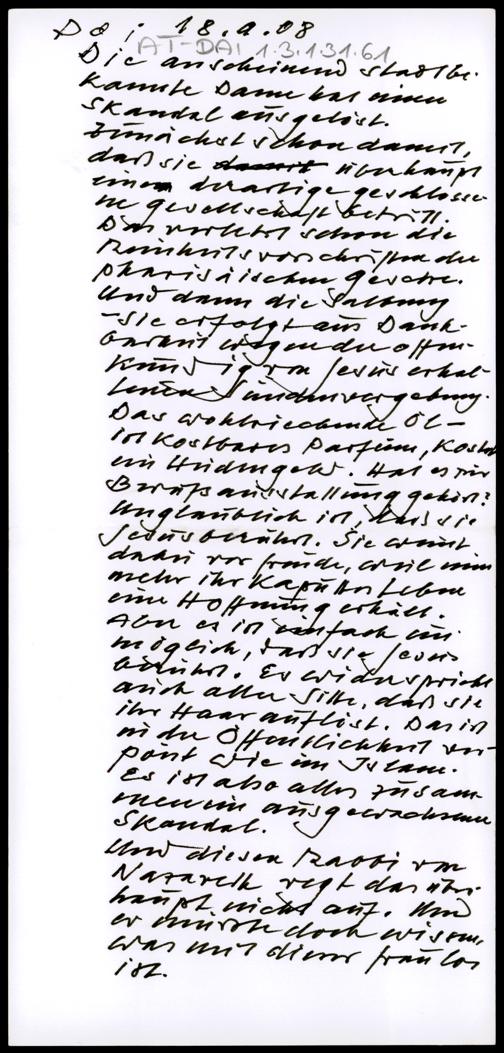 Do: 18.9.08
AT-DAI 1.3.131.61
Die anscheinend stadtbe-
kannte Dame hat einen
Skandal ausgelöst.
Zunächst schon damit,
daß sie damit überhaupt
einem derartige geschlosse-
ne gesellschaft betritt.
Das verletzt schon die
Reinheitsvorschriften der
pharisäischen Gesetze.
Und dann die Salbung
- Sie erfolgt aus Dank-
barkeit wegen der offen-
kundig von Jesus erhal-
tenen Sündenvergebung.
Das wohlriechende Öl -
ist kostbares Parfum, kostet
ein Heidengeld. Hat es zur
Berufsausstattung gehört?
Unglaublich ist, daß sie
Jesus berührt. Sie weint
dabei vor freude, weil nun
mehr ihr kaputtes Leben
eine Hoffnung erhält.
Aber es ist einfach un-
möglich, daß sie Jesus
berührt. Es widerspricht
auch aller Sitte, daß sie
ihr Haar auflöst. Das ist
in der Öffentlichkeit ver-
pönt wie im Islam.
Es ist also alles zusam-
men ein ausgewachsener
Skandal.
Und diesen Rabbi von
Nazareth regt das über-
haupt nicht auf. Und
er müsste doch wissen,
was mit dieser frau los
ist.